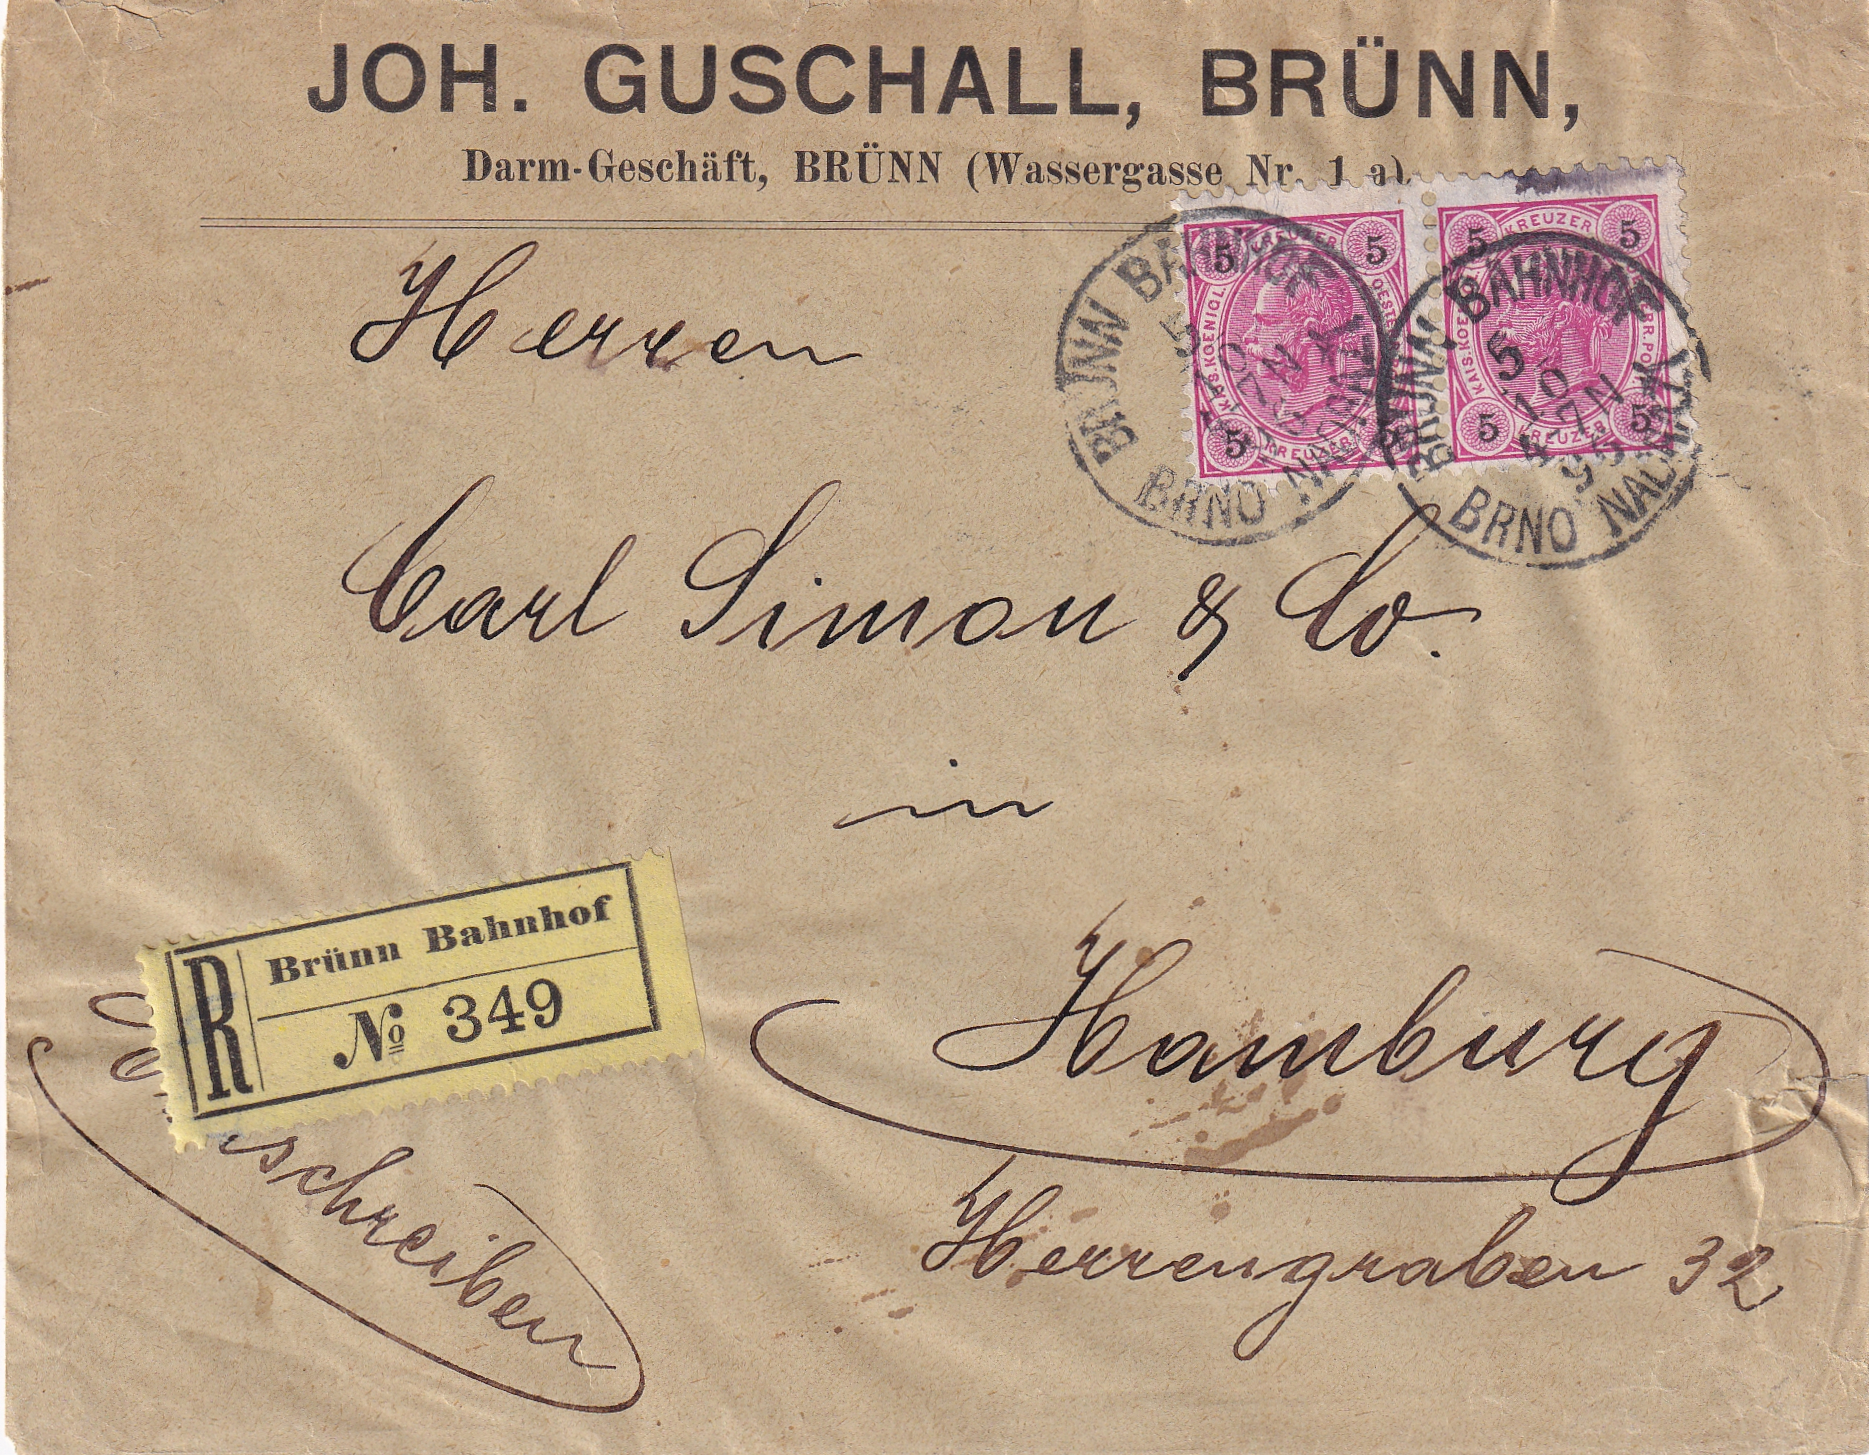 JOH. GUSCHALL, BRÜNN,
Darm-Geschäft, BRÜNN (Wassergasse Nr. 1 a)
5 KREUZER 5
KAIS. KOENIGL. OESTE
5 KREUZER
5 KREUZER 5
KAIS. KOE RR. PO
5 KREUZER 5
BRÜNN BAHNHOF
5
10
BRNO NÁDRAŽÍ
BRÜNN BAHNHOF
5
10
4-7N
95
BRNO NÁDRAŽÍ
Herren
Carl Simon & Co.
in
Hamburg
Herrengraben 32
R
Brünn Bahnhof
№ 349
schreiben